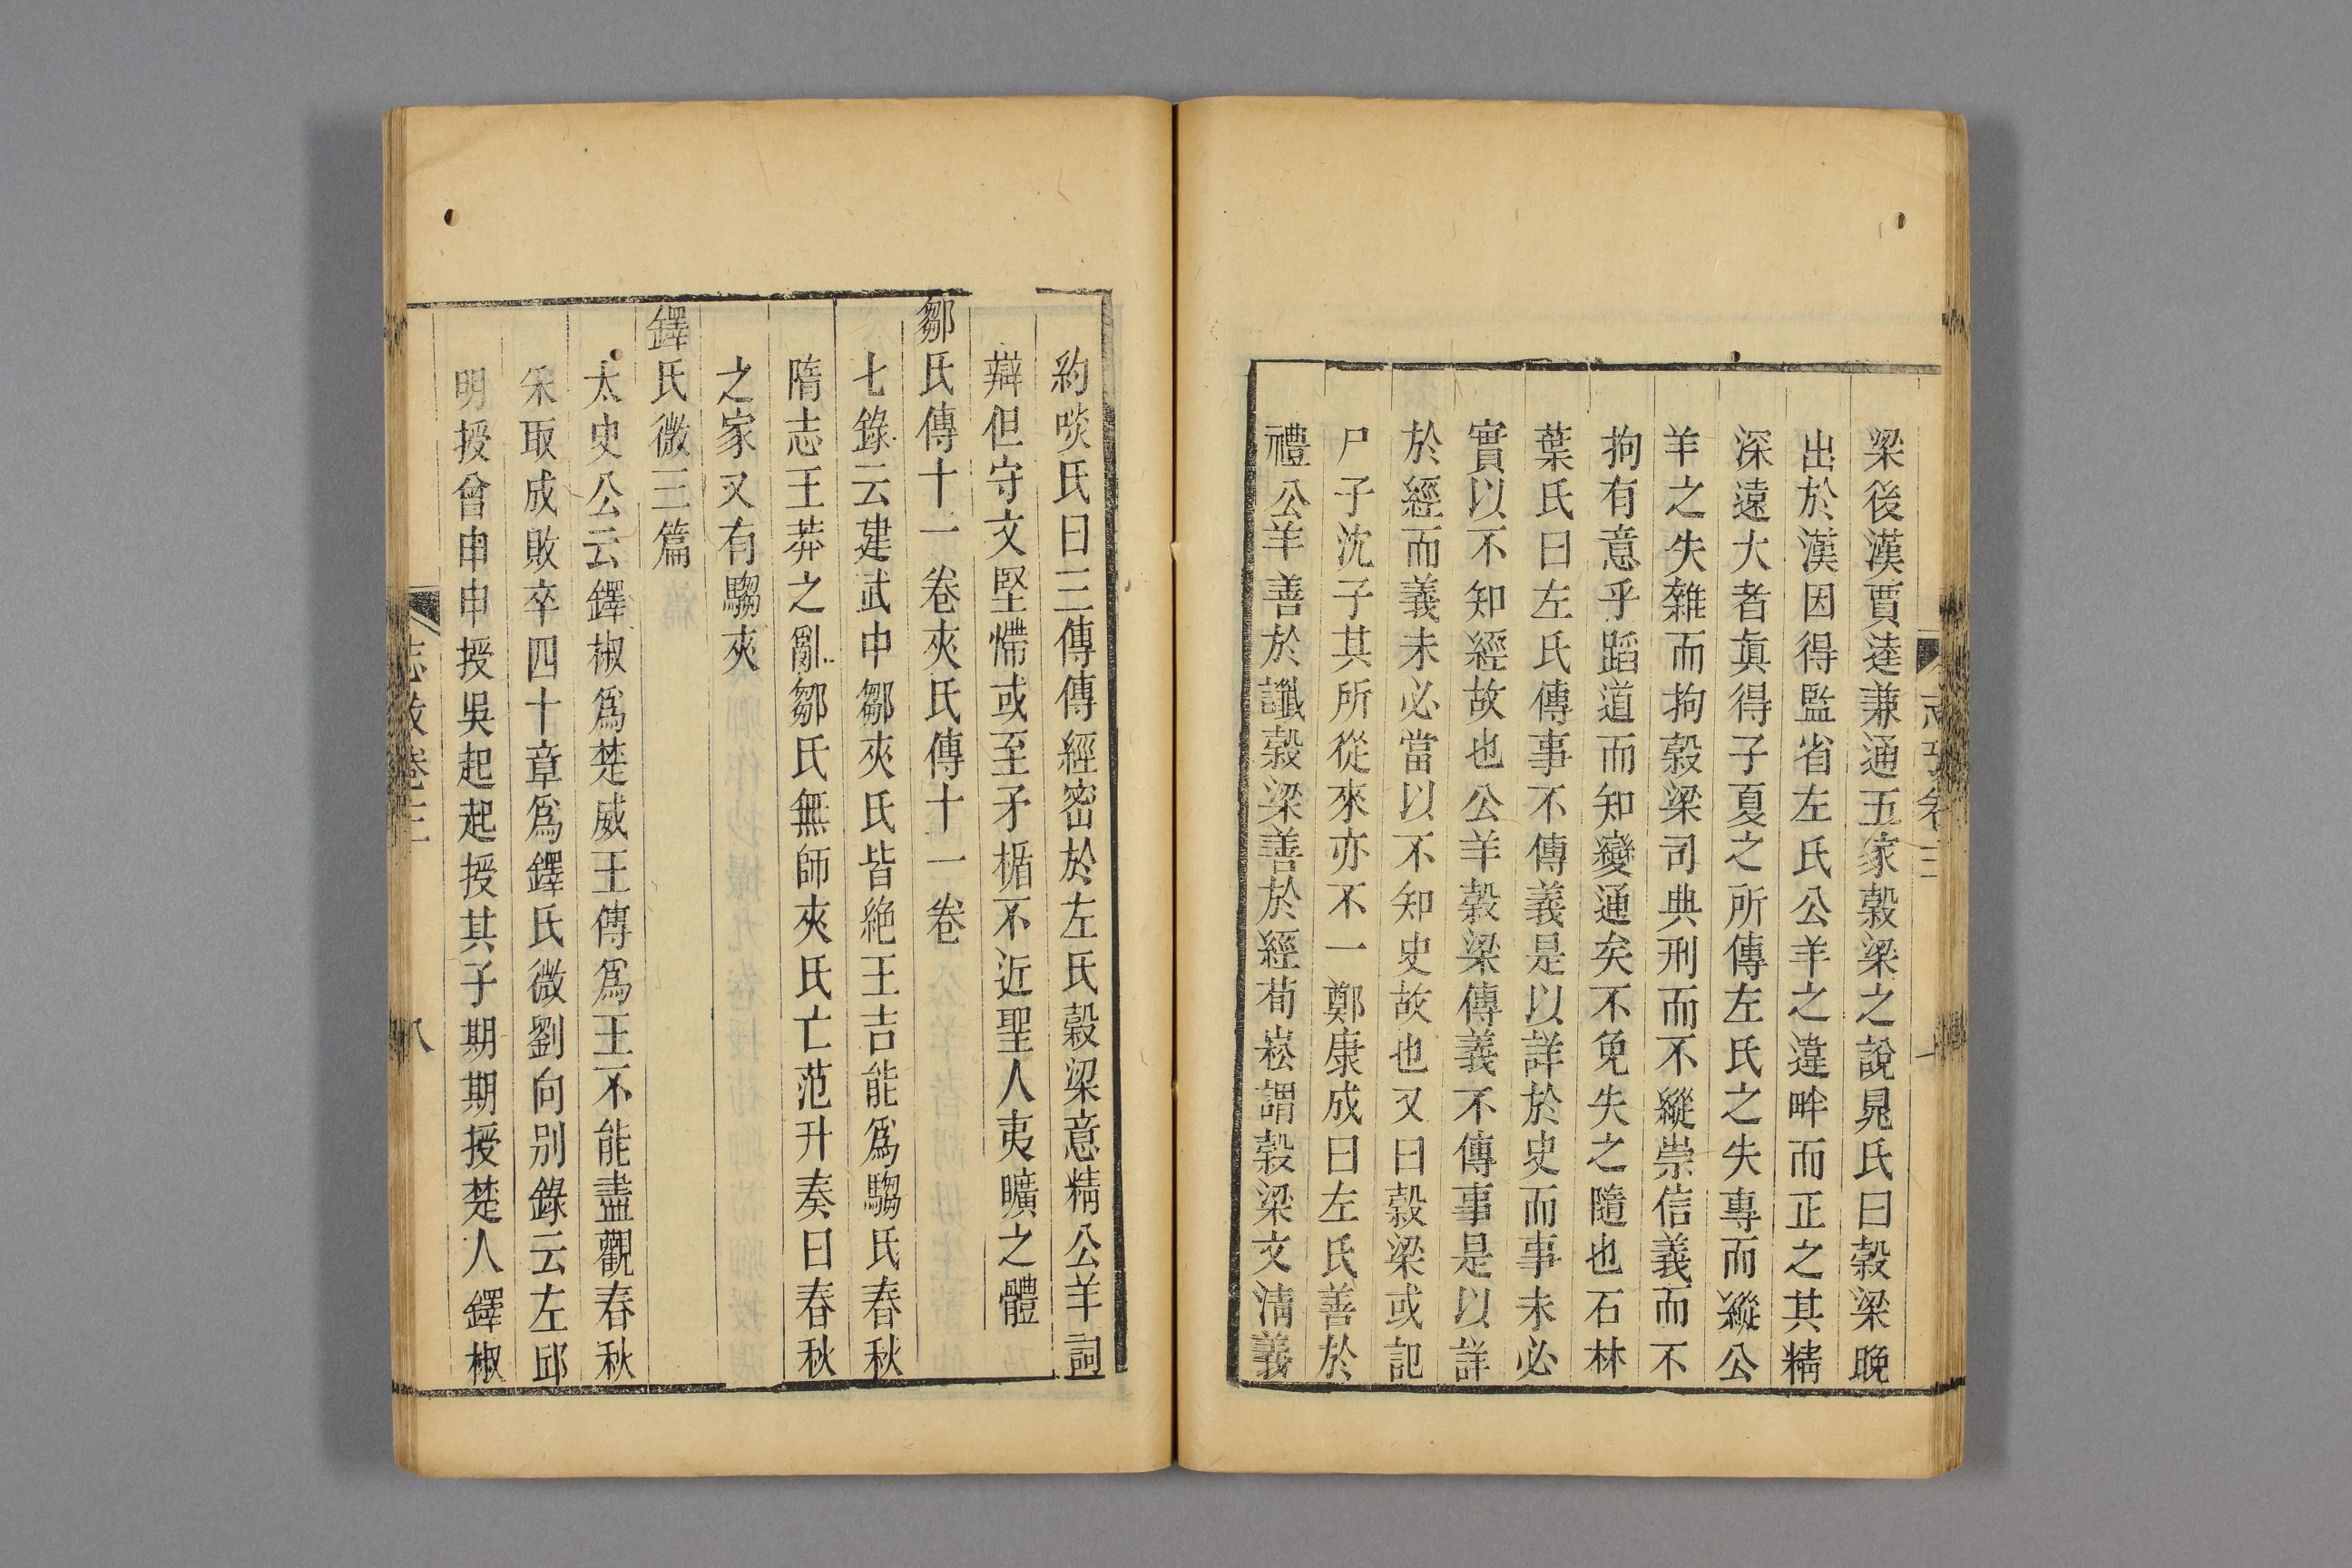 梁後漢賈逵兼通五家穀梁之說晁氏曰穀梁晚
出於漢因得監省左氏公羊之違畔而正之其精
深遠大者眞得子夏之所傳左氏之失專而縱公
羊之失雜而拘穀梁司典刑而不縱崇信義而不
拘有意乎蹈道而知變通矣不免失之隨也石林
葉氏曰左氏傳事不傳義是以詳於史而事未必
實以不知經故也公羊穀梁傳義不傳事是以詳
於經而義未必當以不知史故也又曰穀梁或記
尸子沈子其所從來亦不一鄭康成曰左氏善於
禮公羊善於讖穀梁善於經荀崧謂穀梁文淸義
約啖氏曰三傳傳經密於左氏穀梁意精公羊詞
辯但守文堅懘或至矛楯不近聖人夷曠之體
鄒氏傳十一卷夾氏傳十一卷
七錄云建武中鄒夾氏皆絶王吉能爲騶氏春秋
隋志王莽之亂鄒氏無師夾氏亡范升奏曰春秋
之家又有騶夾
鐸氏微三篇
太史公云鐸椒爲楚威王傳爲王不能盡觀春秋
采取成敗卒四十章爲鐸氏微劉向別錄云左邱
明授曾申申授吳起起授其子期期授楚人鐸椒
志攷卷三
八